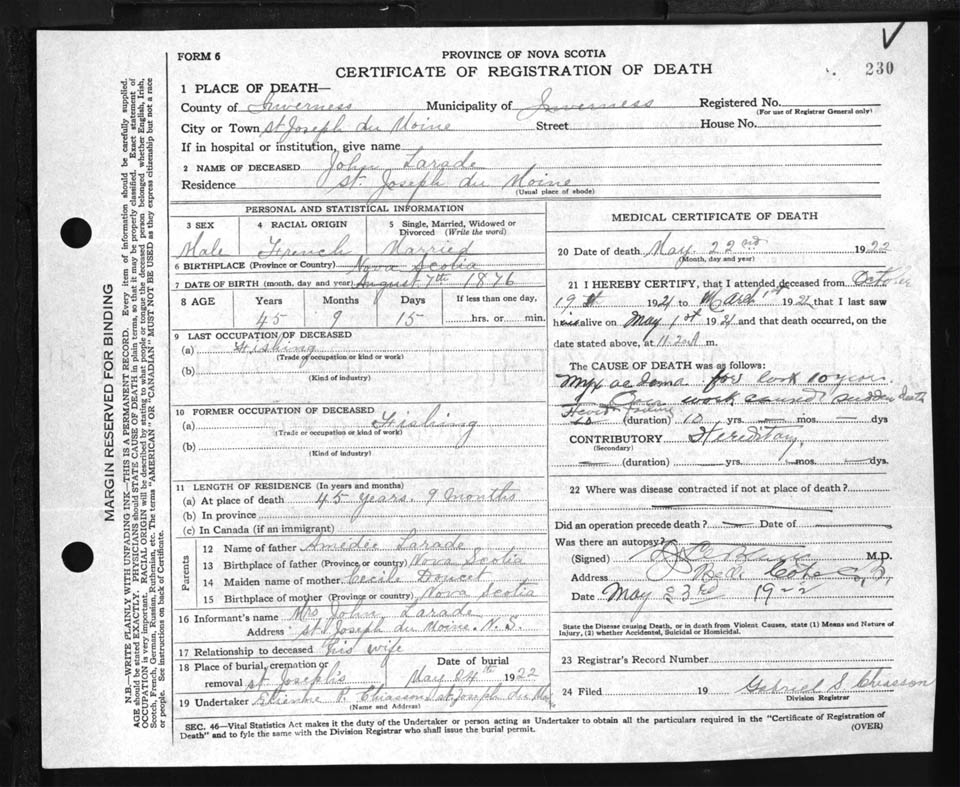 FORM 6
PROVINCE OF NOVA SCOTIA
CERTIFICATE OF REGISTRATION OF DEATH
230
1 PLACE OF DEATH—
County of Inverness Municipality of Inverness Registered No.
(For use of Registrar General only)
City or Town St Joseph du Moine Street House No.
If in hospital or institution, give name
2 NAME OF DECEASED John Larade
Residence St. Joseph du Moine
(Usual place of abode)
PERSONAL AND STATISTICAL INFORMATION
3 SEX 4 RACIAL ORIGIN 5 Single, Married, Widowed or Divorced (Write the word)
Male French Married
6 BIRTHPLACE (Province or Country) Nova Scotia
7 DATE OF BIRTH (month, day and year) August 7th 1876
8 AGE Years Months Days If less than one day,
45 9 15 hrs. or min.
9 LAST OCCUPATION OF DECEASED
(a) Fishing
(Trade or occupation or kind or work)
(b)
(Kind of industry)
10 FORMER OCCUPATION OF DECEASED
(a) Fishing
(Trade or occupation or kind of work)
(b)
(Kind of industry)
11 LENGTH OF RESIDENCE (In years and months)
(a) At place of death 45 years. 9 months
(b) In province
(c) In Canada (if an immigrant)
Parents
12 Name of father Amedée Larade
13 Birthplace of father (Province or Country) Nova Scotia
14 Maiden name of mother Cecile Doucet
15 Birthplace of mother (Province or country) Nova Scotia
16 Informant's name Mrs John Larade
Address St Joseph du Moine. N. S.
17 Relationship to deceased His wife
18 Place of burial, cremation or removal St. Joseph's Date of burial May 24th 1922
19 Undertaker P. Chiasson St Joseph du Moine
(Name and Address)
MEDICAL CERTIFICATE OF DEATH
20 Date of death May 22nd 1922
(Month, day and year)
21 I HEREBY CERTIFY, that I attended deceased from October
19 1921 to March 1st that I last saw
h alive on May 1st and that death occurred, on the
date stated above, at 11 m.
The CAUSE OF DEATH was as follows:
Myxoedema for last 10 years.
Over work caused sudden death
Heart Failure
(duration) 10 yrs. mos. dys
CONTRIBUTORY Hereditary
(Secondary)
(duration) yrs. mos. dys.
22 Where was disease contracted if not at place of death?
Did an operation precede death? Date of
Was there an autopsy?
(Signed) M.D.
Address
Date May 23rd
State the Disease causing Death, or in death from Violent Causes, state (1) Means and Nature of
Injury, (2) whether Accidental, Suicidal or Homicidal.
23 Registrar's Record Number
24 Filed 19 S. Chiasson
Division Registrar
SEC. 46—Vital Statistics Act makes it the duty of the Undertaker or person acting as Undertaker to obtain all the particulars required in the "Certificate of Registration of
Death" and to fyle the same with the Division Registrar who shall issue the burial permit.
(OVER)
MARGIN RESERVED FOR BINDING
N.B.—WRITE PLAINLY WITH UNFADING INK—THIS IS A PERMANENT RECORD. Every item of information should be carefully supplied.
AGE should be stated EXACTLY. PHYSICIANS should STATE CAUSE OF DEATH in plain terms, so that it may be properly classified. Exact statement of
OCCUPATION is very important. RACIAL ORIGIN will be described by stating to what people or tongue the deceased person belonged whether English, Irish,
Scotch, French, German, Russian, Ruthenian, etc. The terms "AMERICAN" OR "CANADIAN" MUST NOT BE USED as they express citizenship but not a race
or people. See instructions on back of Certificate.